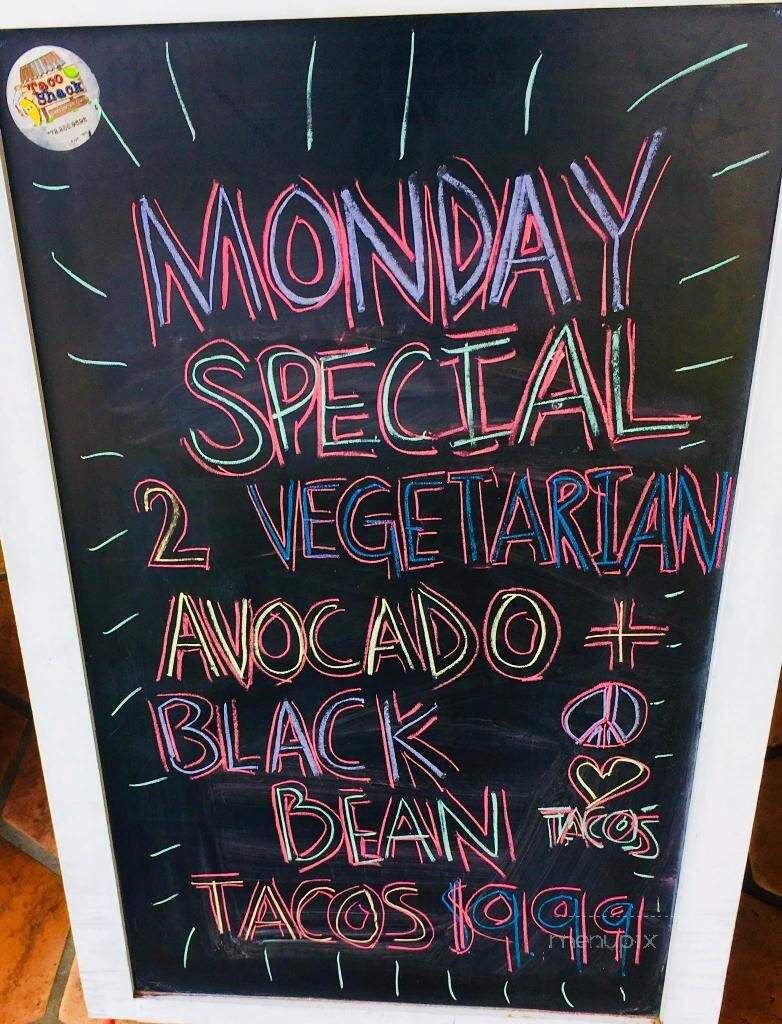 Taco
Shack
MONDAY
SPECIAL
2 VEGETARIAN
AVOCADO +
BLACK
BEAN
TACOS
TACOS $999
menupix